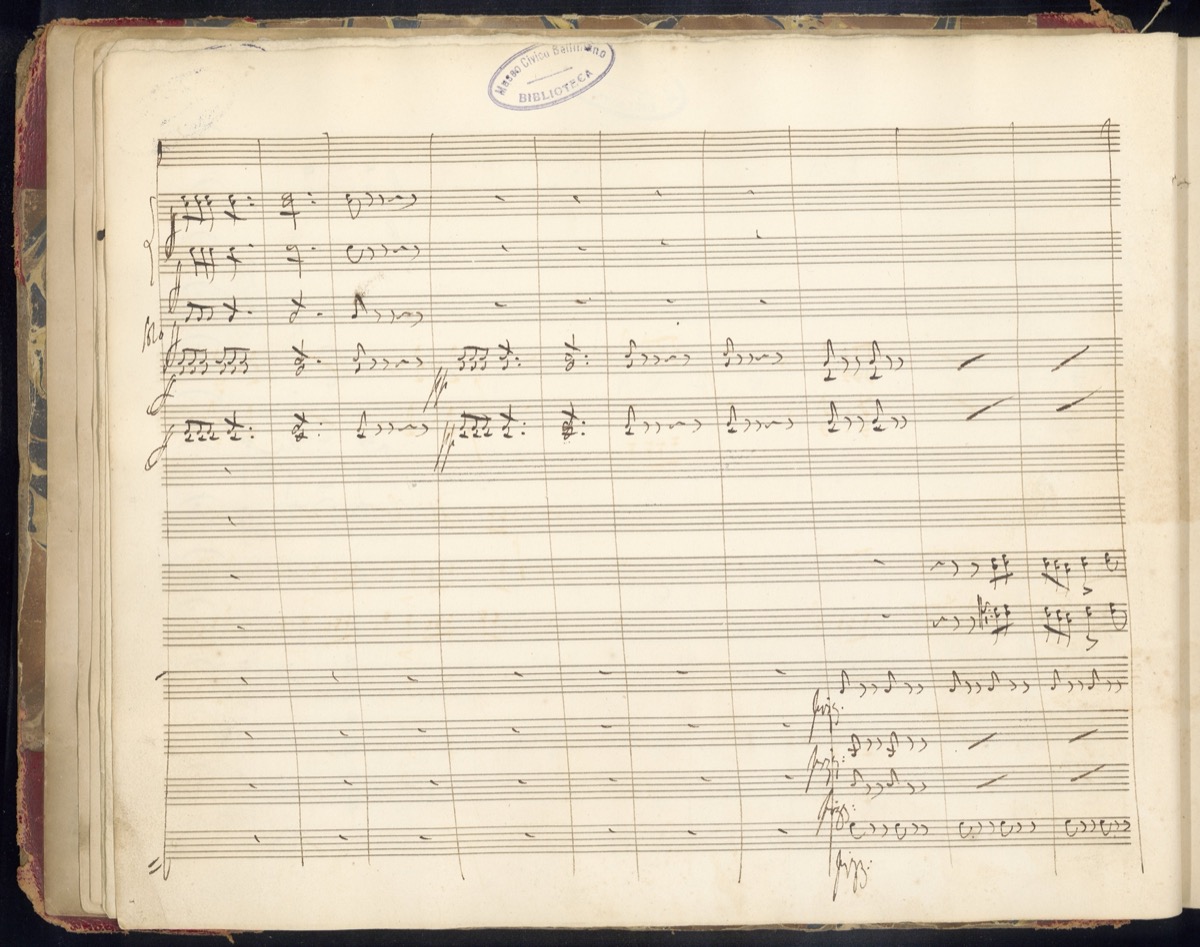 Museo Civico Belliniano
BIBLIOTECA
f
f
f
f
pp
f
pp
pizz.
pizz:
pizz:
pizz: